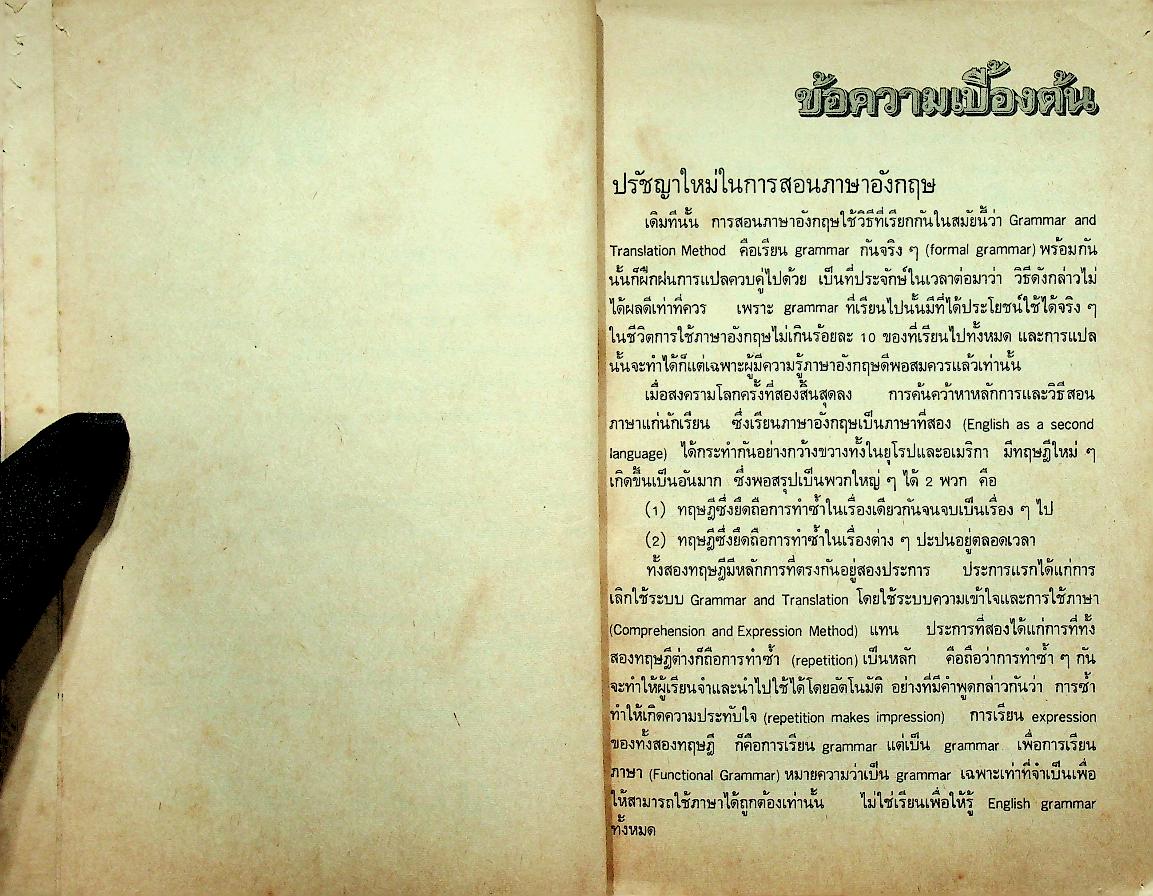 ข้อความเบื้องต้น
ปรัชญาใหม่ในการสอนภาษาอังกฤษ
เดิมทีนั้น การสอนภาษาอังกฤษใช้วิธีที่เรียกกันในสมัยนี้ว่า Grammar and
Translation Method คือเรียน grammar กันจริง ๆ (formal grammar) พร้อมกัน
นั้นก็ฝึกฝนการแปลควบคู่ไปด้วย เป็นที่ประจักษ์ในเวลาต่อมาว่า วิธีดังกล่าวไม่
ได้ผลดีเท่าที่ควร เพราะ grammar ที่เรียนไปนั้นมีที่ได้ประโยชน์ใช้ได้จริง ๆ
ในชีวิตการใช้ภาษาอังกฤษไม่เกินร้อยละ 10 ของที่เรียนไปทั้งหมด และการแปล
นั้นจะทำได้ก็แต่เฉพาะผู้มีความรู้ภาษาอังกฤษดีพอสมควรแล้วเท่านั้น
เมื่อสงครามโลกครั้งที่สองสิ้นสุดลง การค้นคว้าหาหลักการและวิธีสอน
ภาษาแก่นักเรียน ซึ่งเรียนภาษาอังกฤษเป็นภาษาที่สอง (English as a second
language) ได้กระทำกันอย่างกว้างขวางทั้งในยุโรปและอเมริกา มีทฤษฎีใหม่ ๆ
เกิดขึ้นเป็นอันมาก ซึ่งพอสรุปเป็นพวกใหญ่ ๆ ได้ 2 พวก คือ
(1) ทฤษฎีซึ่งยึดถือการทำซ้ำในเรื่องเดียวกันจนจบเป็นเรื่อง ๆ ไป
(2) ทฤษฎีซึ่งยึดถือการทำซ้ำในเรื่องต่าง ๆ ปะปนอยู่ตลอดเวลา
ทั้งสองทฤษฎีมีหลักการที่ตรงกันอยู่สองประการ ประการแรกได้แก่การ
เลิกใช้ระบบ Grammar and Translation โดยใช้ระบบความเข้าใจและการใช้ภาษา
(Comprehension and Expression Method) แทน ประการที่สองได้แก่การที่ทั้ง
สองทฤษฎีต่างก็ถือการทำซ้ำ (repetition) เป็นหลัก คือถือว่าการทำซ้ำ ๆ กัน
จะทำให้ผู้เรียนจำและนำไปใช้ได้โดยอัตโนมัติ อย่างที่มีคำพูดกล่าวกันว่า การซ้ำ
ทำให้เกิดความประทับใจ (repetition makes impression) การเรียน expression
ของทั้งสองทฤษฎี ก็คือการเรียน grammar แต่เป็น grammar เพื่อการเรียน
ภาษา (Functional Grammar) หมายความว่าเป็น grammar เฉพาะเท่าที่จำเป็นเพื่อ
ให้สามารถใช้ภาษาได้ถูกต้องเท่านั้น ไม่ใช่เรียนเพื่อให้รู้ English grammar
ทั้งหมด